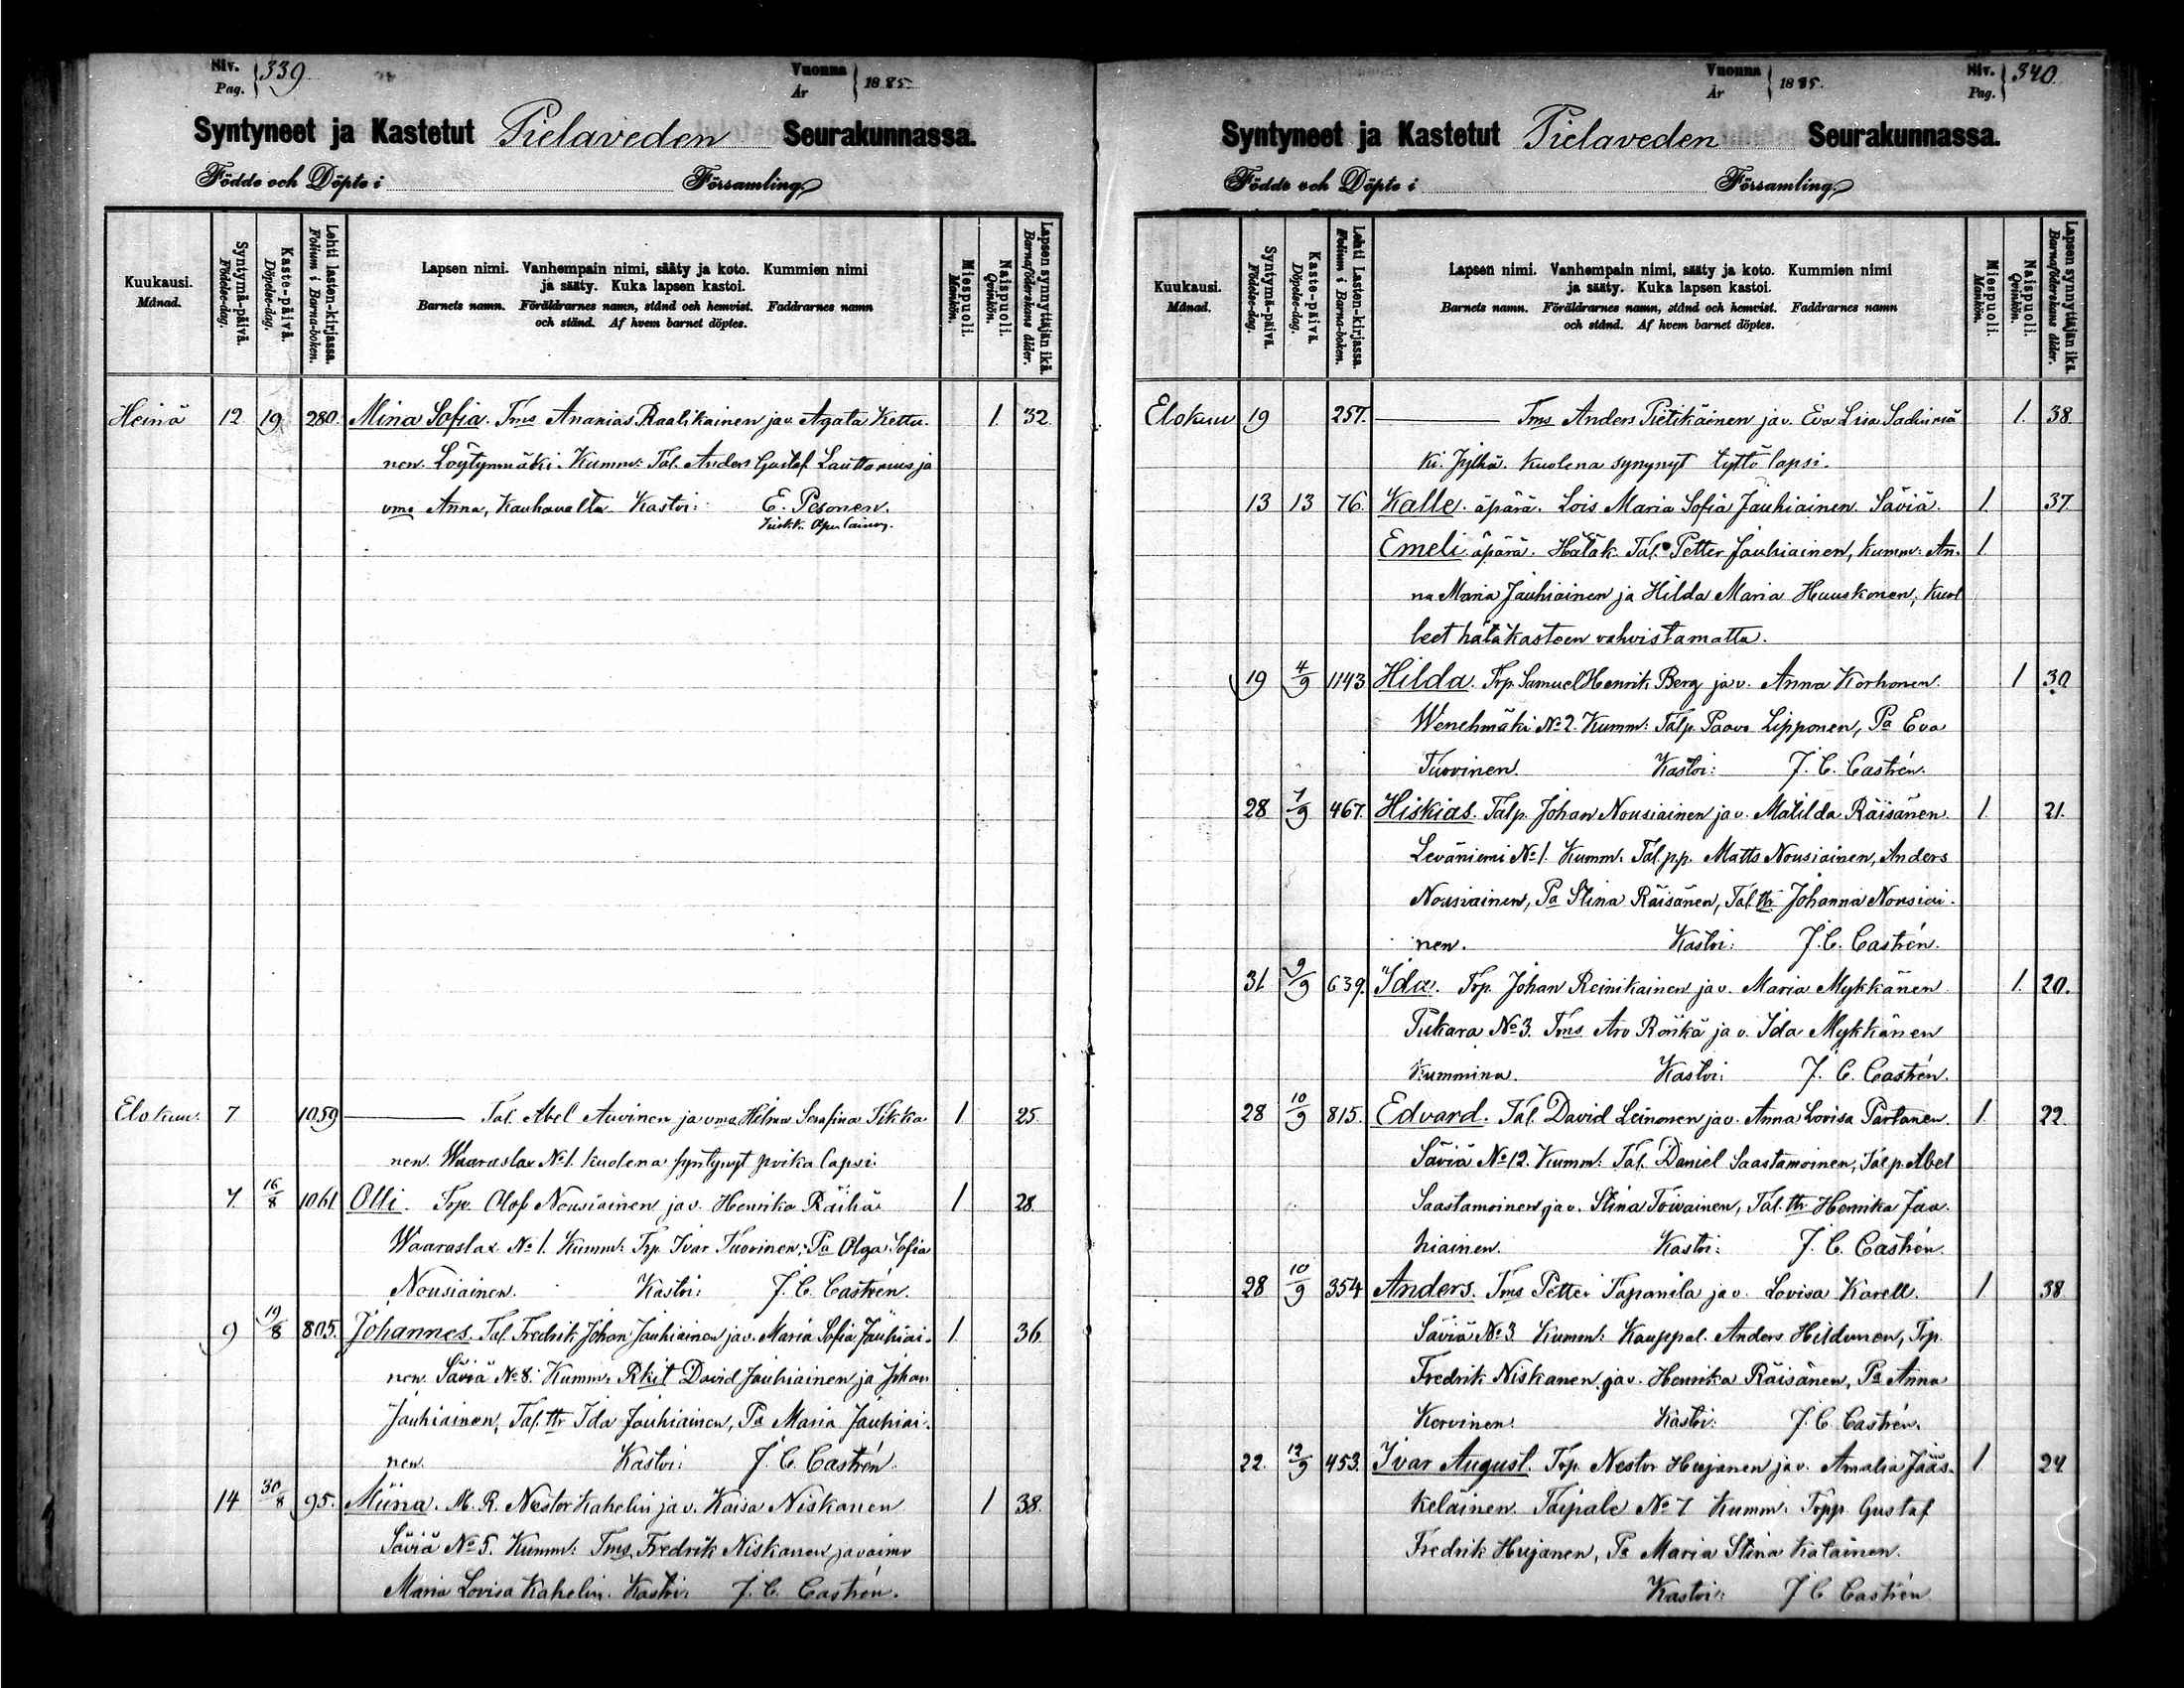 Siv. Pag. 339
Vuonna År 1885.
Syntyneet ja Kastetut Pielaveden Seurakunnassa.
Födde och Döpte i Församling.
Kuukausi. Månad.
Syntymä-päivä. Födelse-dag.
Kaste-päivä. Döpelse-dag.
Lehti lasten-kirjassa. Folium i Barna-boken.
Lapsen nimi. Vanhempain nimi, sääty ja koto. Kummien nimi
ja sääty. Kuka lapsen kastoi.
Barnets namn. Föräldrarnes namn, stånd och hemvist. Faddrarnes namn
och stånd. Af hvem barnet döptes.
Miespuoli. Mankön.
Naispuoli. Qvinkön.
Lapsen synnyttäjän ikä. Barnaföderskans ålder.
Heinä 12 19 280. Mina Sofia. Tms Ananias Raatikainen ja v. Agata Kettu- 1. 32.
nen. Löytynmäki. Kumm: Tal. Anders Gustaf Lauttamus ja
vmo Anna, Kauhavalta. Kastoi: E. Pesonen.
Kirkk. Apulainen.
Elokuu. 7 1059 Tal. Abel Auvinen ja vmo Hilma Serafina Tikka 1 25.
nen. Waaraslax No 1. kuolena syntynyt poika lapsi.
7. 16/8 1061 Olli. Trp. Olof Nousiainen ja v. Henrika Räihä. 1 28.
Waaraslax No 1. Kumm: Trp. Ivar Tuovinen; Pa Olga Sofia
Nousiainen. Kastoi: J. C. Castrén.
9 19/8 805. Johannes. Tal. Fredrik Johan Jauhiainen ja v. Maria Sofia Jauhiai- 1. 36.
nen. Säviä No 8. Kumm: Rkit David Jauhiainen ja Johan
Jauhiainen, Tal. ttr Ida Jauhiainen, Pa Maria Jauhiai-
nen. Kastoi: J. C. Castrén.
14 30/8 95. Miina. M. R. Nestor Kahelin ja v. Kaisa Niskanen 1 38.
Säviä No 5. Kumm: Tms Fredrik Niskanen ja vaimo
Maria Lovisa Kahelin. Kastoi: J. C. Castrén.
Vuonna År 1885.
Siv. Pag. 340.
Syntyneet ja Kastetut Pielaveden Seurakunnassa.
Födde och Döpte i Församling.
Kuukausi. Månad.
Syntymä-päivä. Födelse-dag.
Kaste-päivä. Döpelse-dag.
Lehti Lasten-kirjassa. Folium i Barna-boken.
Lapsen nimi. Vanhempain nimi, sääty ja koto. Kummien nimi
ja sääty. Kuka lapsen kastoi.
Barnets namn. Föräldrarnes namn, stånd och hemvist. Faddrarnes namn
och stånd. Af hvem barnet döptes.
Miespuoli. Mankön.
Naispuoli. Qvinkön.
Lapsen synnyttäjän ikä. Barnaföderskans ålder.
Elokuu 19 257. Tms Anders Pietikäinen ja v. Eva Lisa Sadinmä 1. 38.
ki. Jylhä. Kuolena synynyt tyttö lapsi.
13 13 76. Kalle. äpärä. Lois Maria Sofia Jauhiainen. Säviä. 1. 37.
Emeli äpärä. Hätäk. Tal. Petter Jauhiainen, Kumm: An- 1
na Maria Jauhiainen ja Hilda Maria Huuskonen, Kuol
leet hätäkasteen vahvistamatta.
19 4/9 1143 Hilda. Trp. Samuel Henrik Berg ja v. Anna Korhonen. 1 30.
Wenehmäki No 2. Kumm: Talp. Paavo Lipponen, Pa Eva
Tuovinen. Kastoi: J. C. Castrén.
28 7/9 467. Hiskias. Talp. Johan Nousiainen ja v. Matilda Räisänen. 1. 21.
Leväniemi No 1. Kumm: Tal. pp. Matts Nousiainen, Anders
Nousiainen, Pa Stina Räisänen, Tal. ttr Johanna Nousiai-
nen. Kastoi: J. C. Castrén.
31. 9/9 639. Ida. Trp. Johan Reinikainen ja v. Maria Mykkänen 1. 20.
Pukara No 3. Tms Aro Rönkä ja v. Ida Mykkänen
Kummina. Kastoi: J. C. Castrén.
28 10/9 815. Edvard. Tal. David Leinonen ja v. Anna Lovisa Partanen. 1. 22.
Säviä No 12. Kumm: Tal. Daniel Saastamoinen, Talp. Abel
Saastamoinen ja v. Stina Toivainen, Tal. ttr Henrika Jau-
hiainen. Kastoi: J. C. Castrén.
28 10/9 354 Anders. Tms Petter Tapanila ja v. Lovisa Karell. 1 38
Säviä No 3 Kumm: Kauppal. Anders Hildunen, Trp.
Fredrik Niskanen ja v. Henrika Räisänen, Pa Anna
Korvinen. Kastoi: J. C. Castrén.
22. 12/9 453. Ivar August. Trp. Nestor Hujanen ja v. Amalia Jääs- 1. 24
keläinen. Taipale No 7 Kumm: Trpp. Gustaf
Fredrik Hujanen, Pa Maria Stina Katainen.
Kastoi: J. C. Castrén